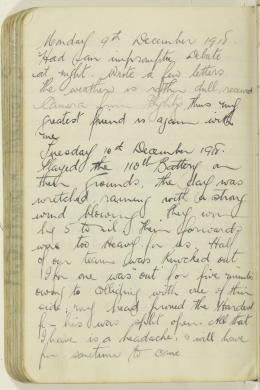 Monday 9th December 1918.
Had an impromptu Debate
at night. Wrote a few letters
the weather is rather dull, received
Camera from Blighty, thus my
greatest friend is again with
me.
Tuesday 10th December 1918.
Played the 110th Battery on
their grounds, the day was
wretched raining with a strong
wind blowing. They won
by 5 to nil their forwards
were too heavy for us, Half
of our team was knocked out
I for one was out for five minutes
owing to colliding with one of their
side, my head proved the Hardest
for his was split open. All that
I have is a headache, & will have
for sometime to come